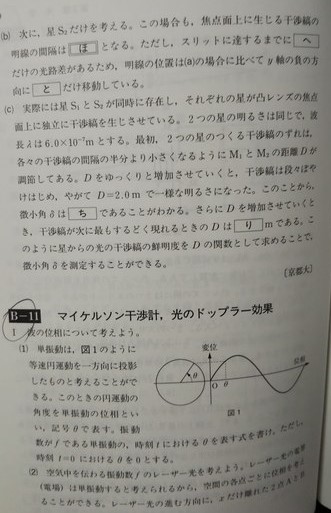 (b) 次に，星S₂だけを考える。この場合も，焦点面上に生じる干渉縞の
明線の間隔は ほ となる。ただし，スリットに達するまでに へ
だけの光路差があるため，明線の位置は(a)の場合に比べてy軸の負の方
向に と だけ移動している。
(c) 実際には星S₁とS₂が同時に存在し，それぞれの星が凸レンズの焦点
面上に独立に干渉縞を生じさせている。2つの星の明るさは同じで，波
長λは6.0×10⁻⁷mとする。最初，2つの星のつくる干渉縞のずれは，
各々の干渉縞の間隔の半分より小さくなるようにM₁とM₂の距離Dが
調節してある。Dをゆっくりと増加させていくと，干渉縞は段々ぼや
けはじめ，やがてD=2.0mで一様な明るさになった。このことから，
微小角δは ち であることがわかる。さらにDを増加させていくと
き，干渉縞が次に最もするどく現れるときのDは り mである。こ
のように星からの光の干渉縞の鮮明度をDの関数として求めることで，
微小角δを測定することができる。
〔京都大〕
B-11 マイケルソン干渉計，光のドップラー効果
1 波の位相について考えよう。
(1) 単振動は，図1のように
等速円運動を一方向に投影
したものと考えることがで
きる。このときの円運動の
角度を単振動の位相とい
い，記号θで表す。振動
数fである単振動の，時刻tにおけるθを表す式を書け。ただし，
時刻t=0におけるθを0とする。
変位
位相
θ
O
θ
図1
(2) 空気中を伝わる振動数fのレーザー光を考えよう。レーザー光の電界
(電場)は単振動すると考えられるから，空間の各点ごとに位相を考え
ることができる。レーザー光の進む方向に，xだけ離れた2点A